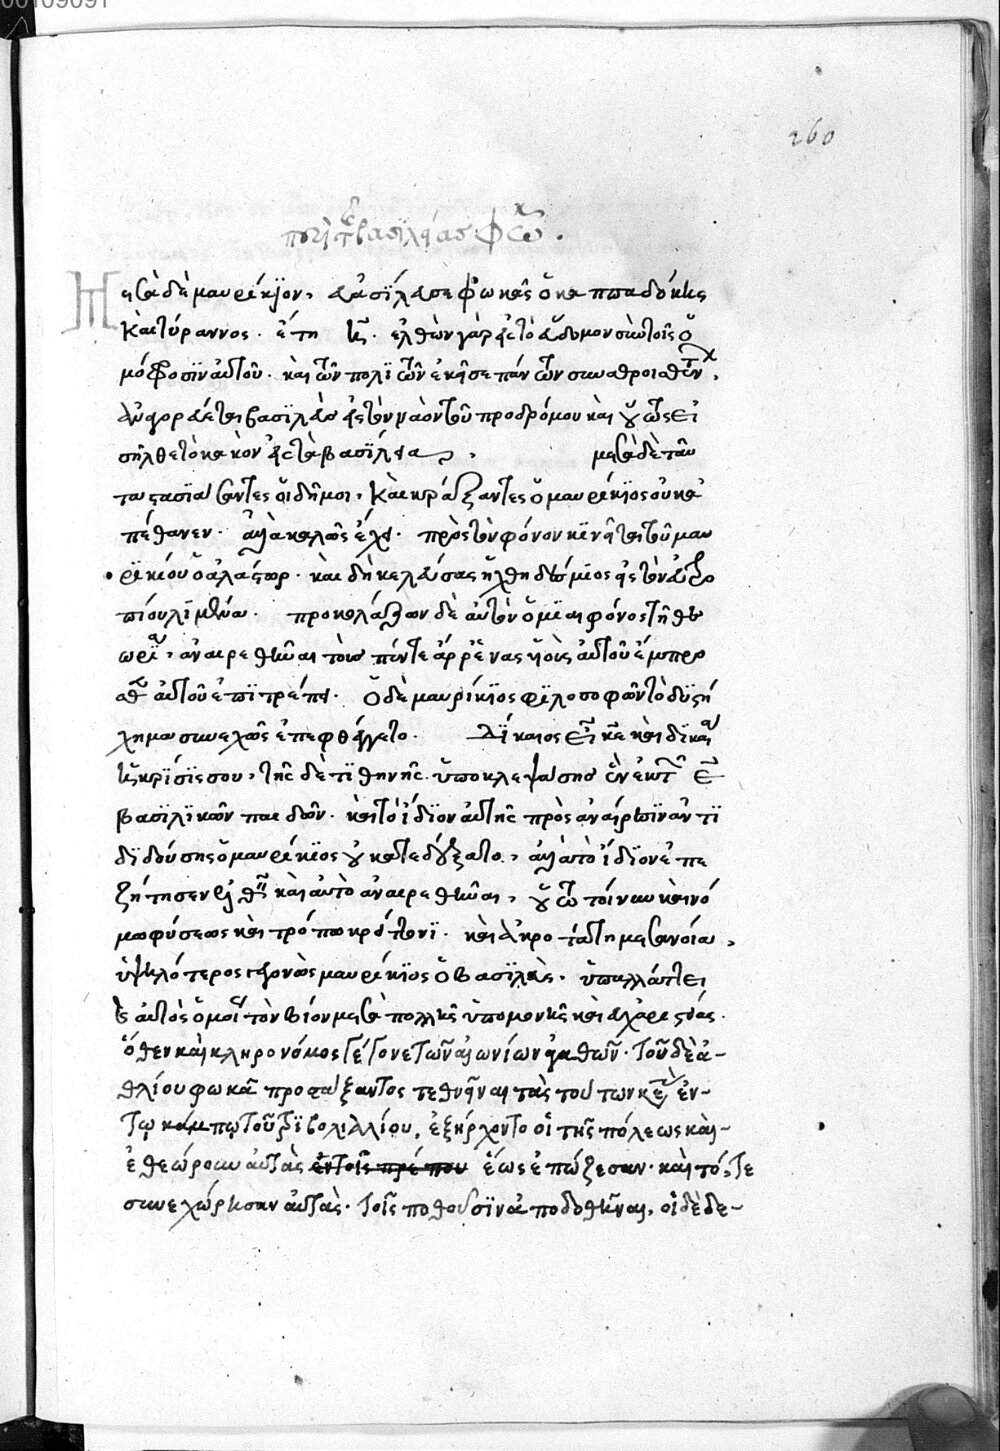 00109091
260
περὶ τῆς βασιλείας Φωκᾶ.
Μετὰ δὲ μαυρίκϊον, ἐβασίλευσε φωκᾶς ὁ καππαδόκης
καὶ τύραννος. ἔτη η. ἐλθὼν γὰρ εἰς τὸ ἕβδομον σὺν τοῖς ὁ
μόφροσϊν αὐτοῦ. καὶ τῶν πολϊτῶν ἐκεῖσε πάντων συναθροισθέντων,
ἀναγορεύεται βασϊλεὺς εἰς τὸν ναὸν τοῦ προδρόμου καὶ οὕτως εἰ
σῆλθε τὸ κακὸν εἰς τὰ βασίλεια, μετὰ δὲ ταῦ
τα στασϊάσαντες οἱ δῆμοι, καὶ κράξαντες ὁ μαυρίκϊος οὐκ ἀ
πέθανεν. ἀλλὰ καλῶς ἔχει. πρὸς τὸν φόνον κϊνεῖται τοῦ μαυ
ρϊκίου ὁ ἀλάστωρ. καὶ δὴ κελεύσας ἤχθη δέσμϊος εἰς τὸν εὐτρο
πίου λϊμένα. προκολάζων δὲ αὐτὸν ὁ μϊαιφόνος τῇ θε
ωρίᾳ, ἀναιρεθῆναι τοὺς πέντε ἄρρενας υἱοὺς αὐτοῦ ἔμπρο
σθεν αὐτοῦ ἐπϊτρέπει. ὁ δὲ μαυρίκϊος φϊλοσοφῶν τὸ δυστύ
χημα συνεχῶς ἐπεφθέγγετο. Δίκαιος εἶ κε καὶ δϊκαία
ἡ κρϊσϊς σου, τῆς δὲ τϊθηνῆς ὑποκλεψάσης ἓν ἐκ τῶν
βασϊλϊκῶν παιδίων. καὶ τὸ ἴδϊον αὐτῆς πρὸς ἀναίρεσϊν ἀντϊ
δϊδούσης ὁ μαυρίκϊος οὐ κατεδέξατο, ἀλλὰ τὸ ἴδϊον ἐπε
ζήτησεν εὑρεθῆναι καὶ αὐτὸ ἀναιρεθῆναι, οὕτω τοίνυν καὶ νό
μων φύσεως καὶ τρόπων κρείττονϊ. καὶ ἀκροτάτῃ μετανοίᾳ,
ὑψηλότερος γεγονὼς μαυρίκϊος ὁ βασϊλεὺς. ὑπαλλάττει
καὶ αὐτὸς ὁμοίως τὸν βίον μετὰ πολλῆς ὑπομονῆς καὶ εὐχαριστίας.
ὅθεν καὶ κληρονόμος γέγονε τῶν αἰωνίων ἀγαθῶν. τοῦ δὲ ἀ-
θλίου φωκᾶ προστάξαντος τεθῆναι τὰς τούτων κεφαλὰς ἐν-
τῷ κάμπῳ τοῦ τρϊβουναλίου, ἐξήρχοντο οἱ τῆς πόλεως καὶ-
ἐθεώρουν αὐτὰς ἕως ἐπώζεσαν. καὶ τότε
συνεχώρησαν αὐτὰς. τοῖς ποθοῦσϊν ἀποδοθῆναι, οἱ δὲ δε-